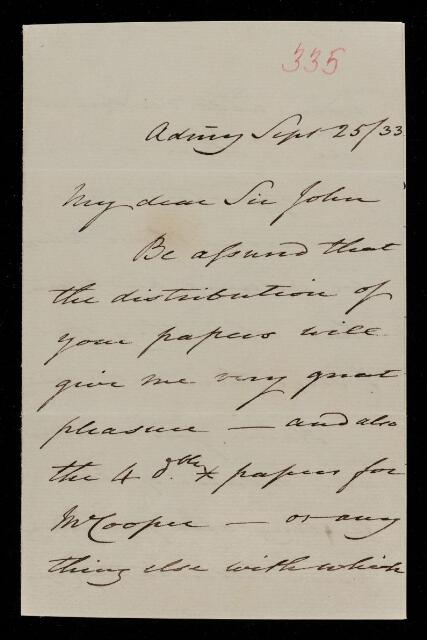 335
Admy Sept 25/33
My dear Sir John
Be assured that
the distribution of
your papers will
give me very great
pleasure — and also
the 4 papers for
Mr Cooper — or any
thing else with which